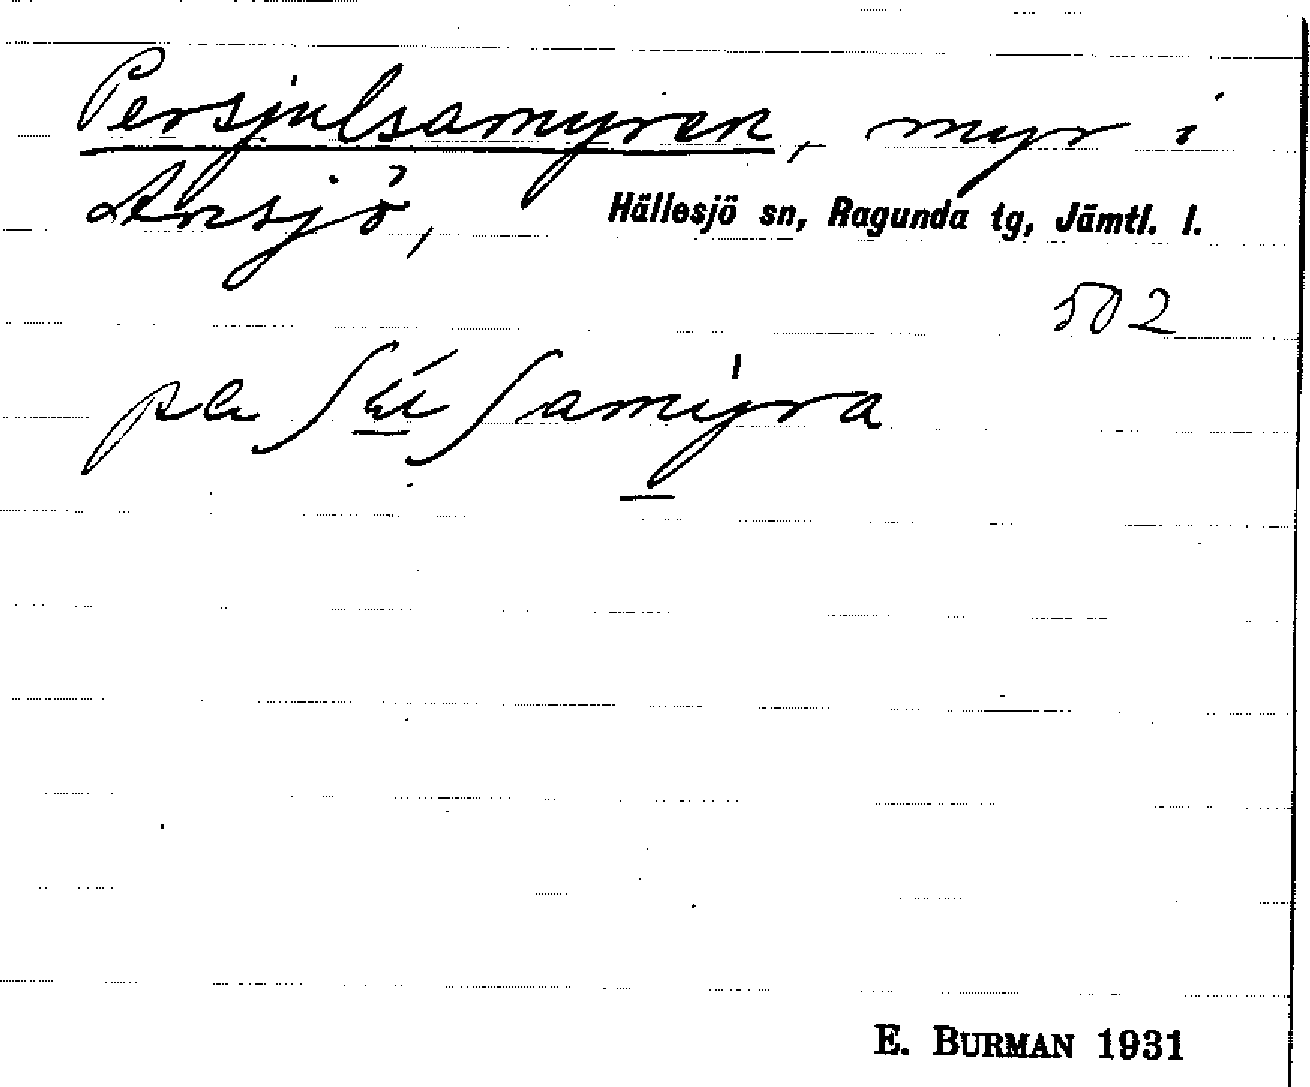 Persjulsamyren, myr i
Ansjö, Hällesjö sn, Ragunda tg, Jämtl. l.
502
E. BURMAN 1931